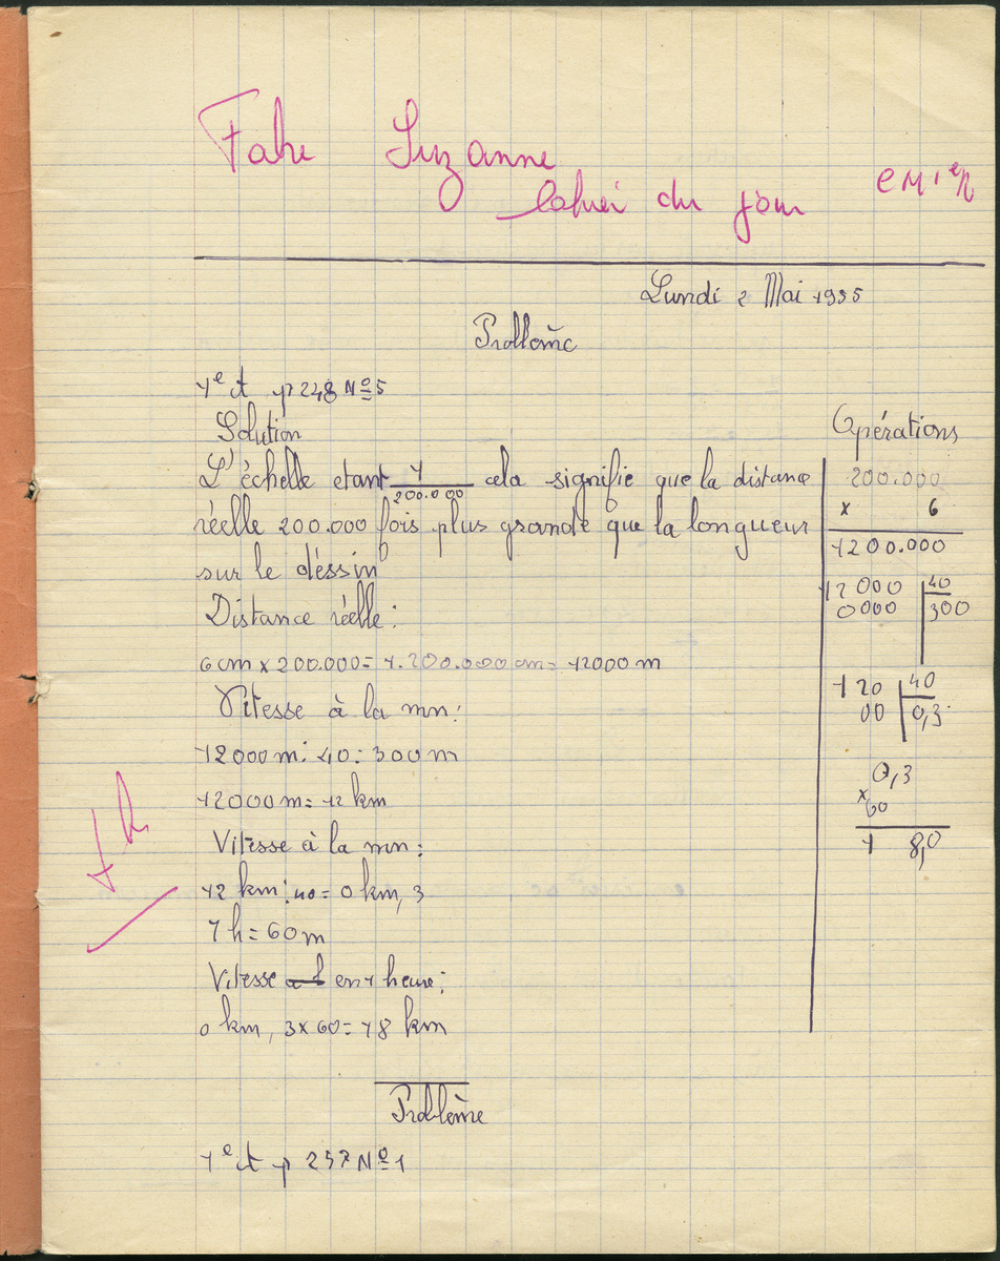 Fabre Suzanne
Cahier du jour
CM1 eB
Lundi 2 Mai 1955
Problème
1e et p 248 Nº 5
Solution
L'échelle etant 1/200.000 cela signifie que la distance
réelle 200.000 fois plus grande que la longueur
sur le déssin
Distance réelle:
6cm x 200.000= 1.200.000 cm= 12000 m
Vitesse à la mn:
12000 m: 40= 300m
12000m= 12 km
Vitesse à la mn:
12 km: 40= 0 km, 3
1 h= 60m
Vitesse en 1 heure:
0 km, 3x60= 18 km
Opérations
200.000
x 6
1200.000
12000 40
0000 300
120 40
00 0,3
0,3
x 60
18,0
Problème
1e et p 257 Nº 1